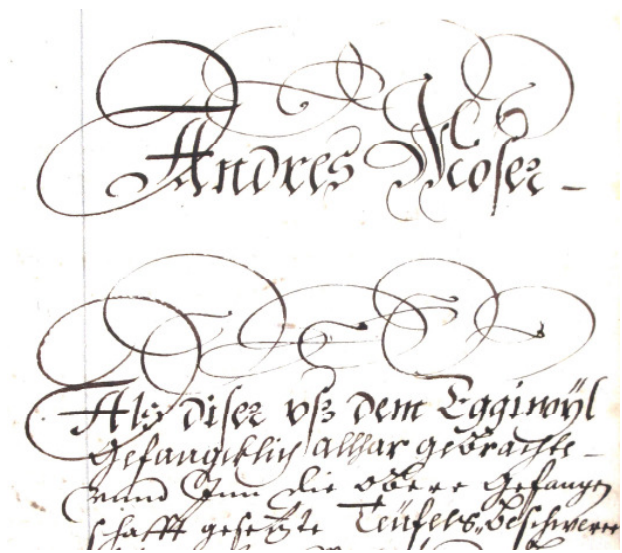 Andres Moser -
Als diser vß dem Eggiwÿl
Gefangklich allhar gebrachte -
vnnd Jnn die obere Gefangen
schafft gesetzte Teüfels-beschwerer